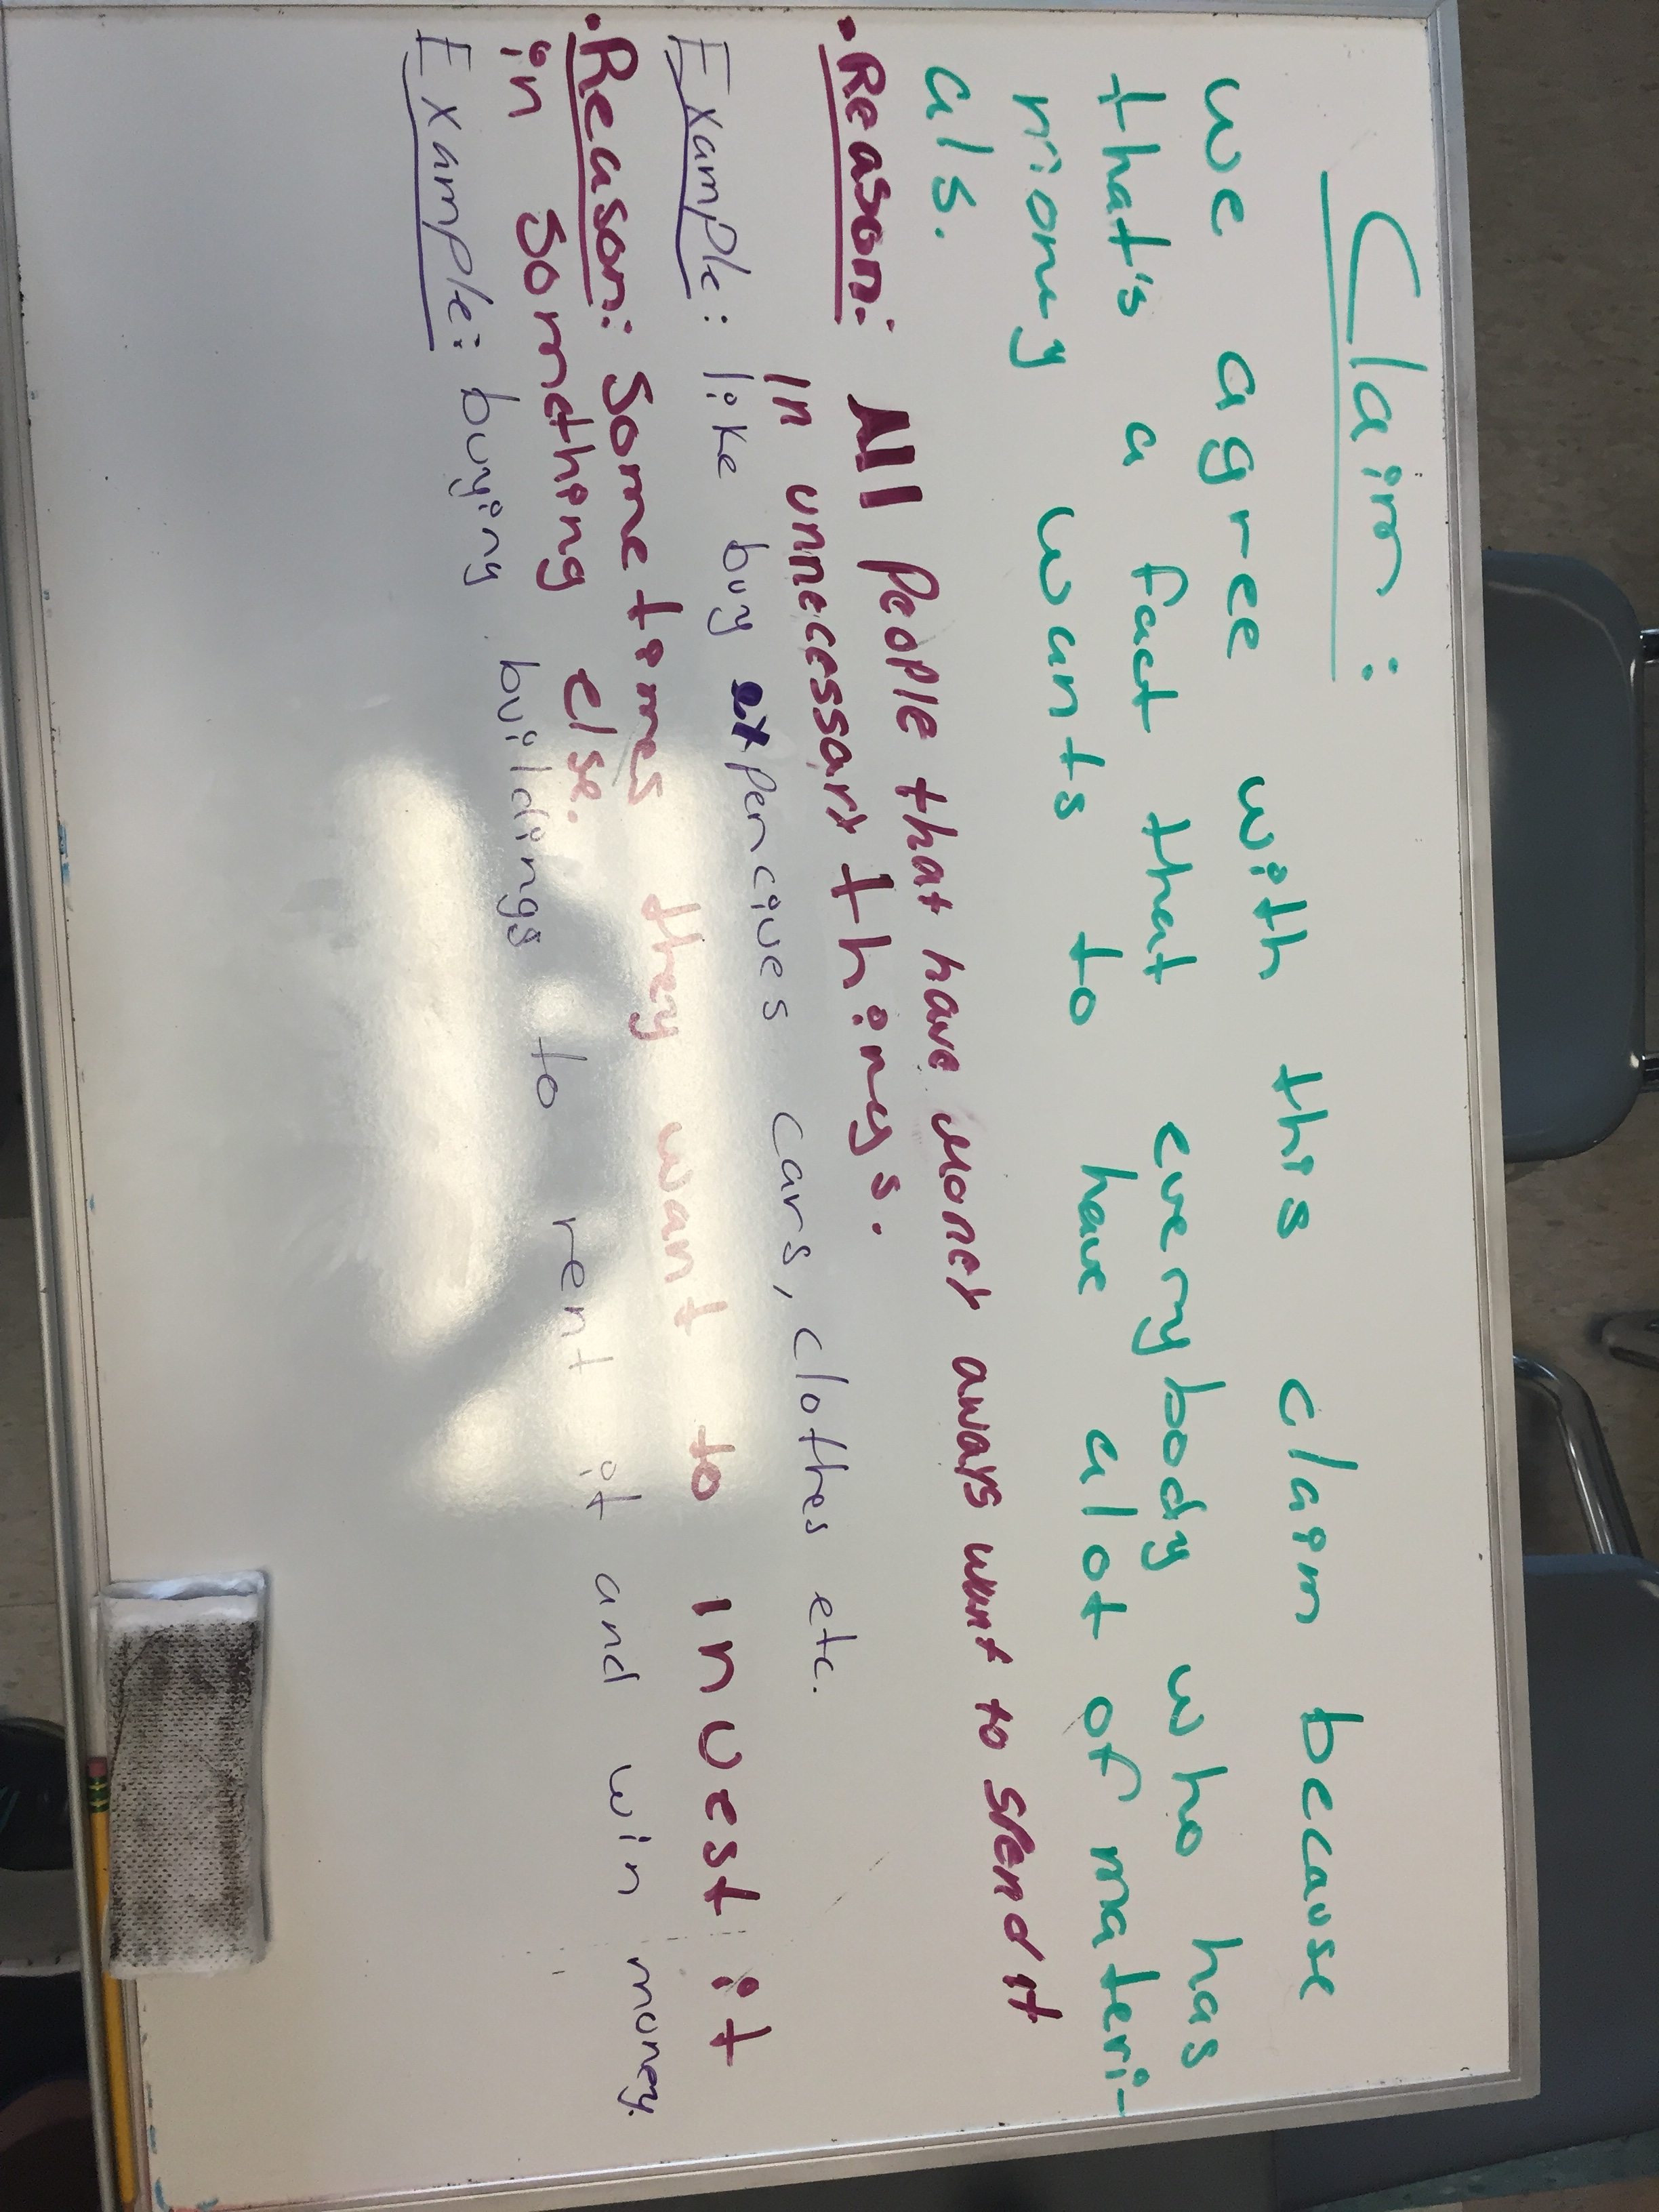 Claim:
we agree with this claim because
that's a fact that everybody who has
money wants to have alot of materi-
als.
•Reason: All People that have money aways want to spend it
in unnecessary things.
Example: like buy expencives cars, clothes etc.
•Reason: Sometimes they want to invest it
in something else.
Example: buying buildings to rent it and win money.